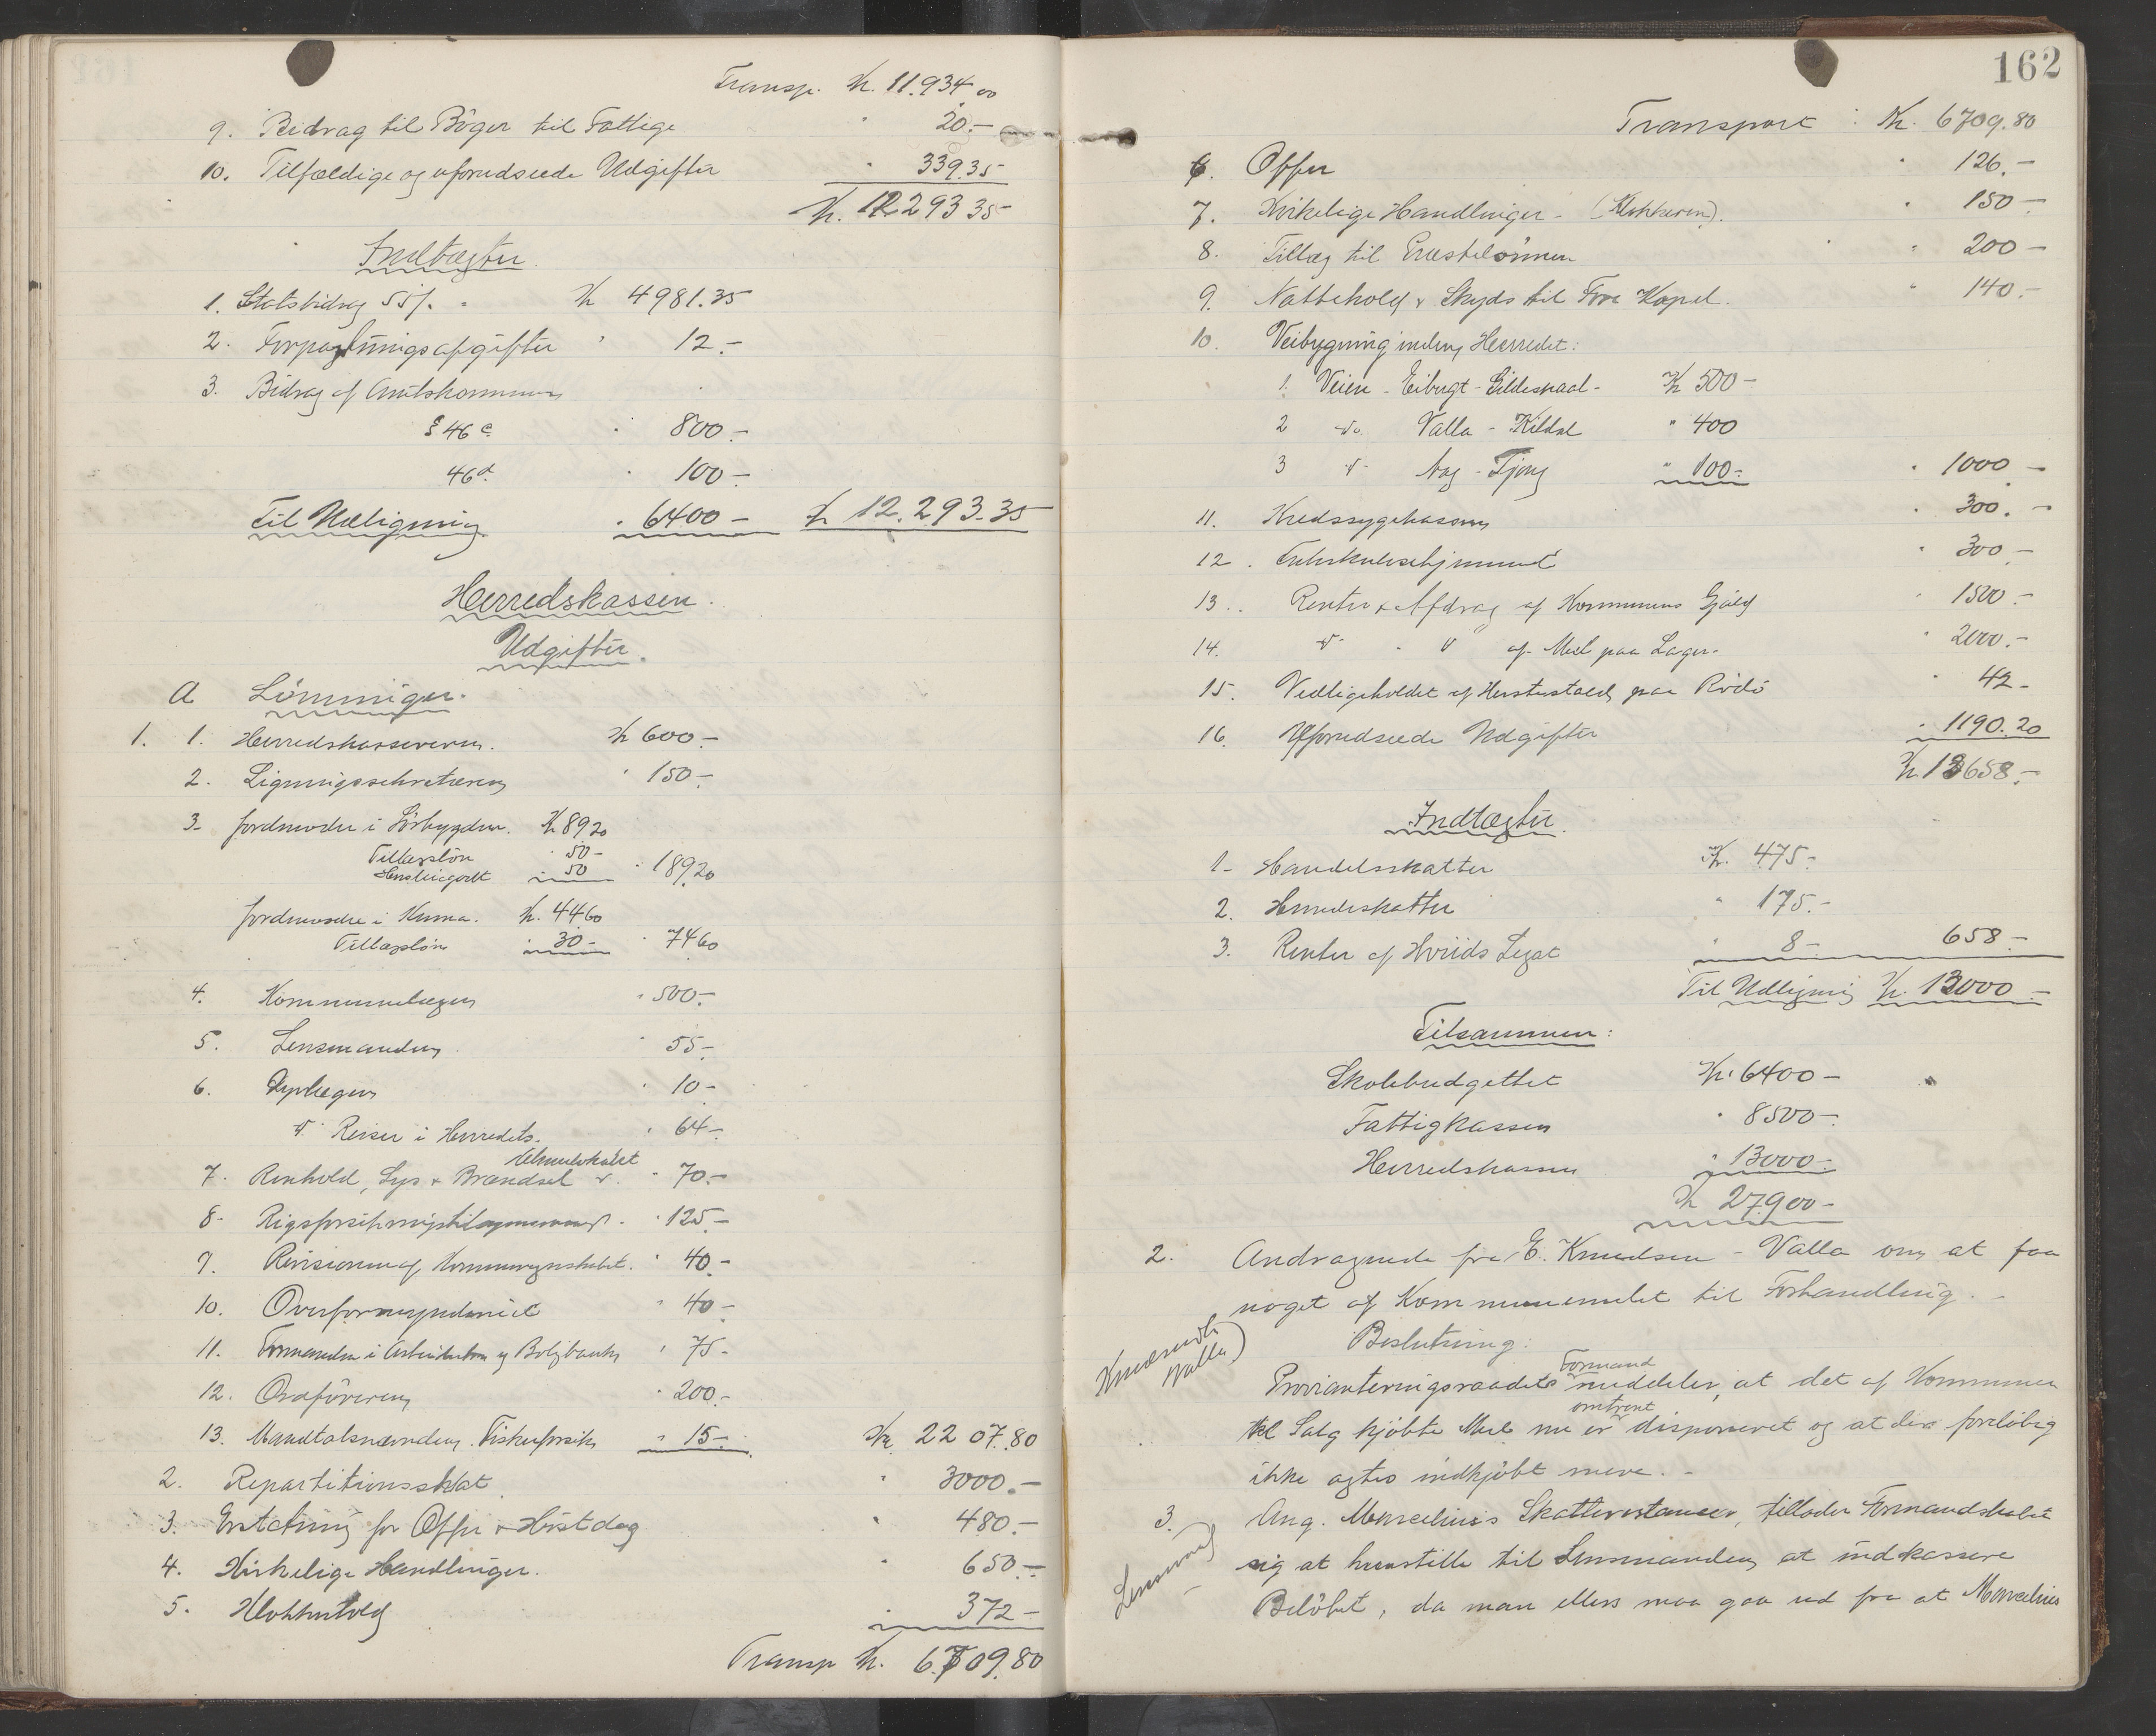 Transp. Kr. 11.934 00
9. Bidrag til Bøger til Fattige " 20.-
10. Tilfældige og uforudseede Udgifter " 339.35
Kr. 12293 35
Indtægter.
1. Statsbidrag 55 %. " Kr 4981.35
2. Forpagtningsafgifter " 12.-
3. Bidrag af Amtskommunen
§ 46 c. " 800.-
46 d. " 100.-
Til Udligning " 6400 - Kr 12.293.35
Herredskassen.
Udgifter.
A Lønninger.
1. 1. Herredskassereren. Kr 600 -
2. Ligningssekretæren " 150 -
3. Jordmoder i Sørbygden. Kr 89 20
Tillægsløn " 50 -
" 50 " 189 20
Jordmoder i Kunna. Kr. 44 60
Tillægsløn " 30 - " 74 60
4. Kommunelægen " 500.-
5. Lensmanden " 55.-
6. Dyrlægen " 10 -
Reiser i Herredet. " 64 -
7. Renhold, Lys & Brændsel " 70.-
8. " 125.-
9. Revisionen af Kommuneregnskabet. " 40.-
10. Overformynderiet " 40 -
11. Formanden i og Boligbanken " 75 -
12. Ordføreren " 200.-
13. Mandtalsnævnden. Fiskerforsikr. " 15 - Kr. 2207.80
2. Repartitionsskat. " 3000.-
3. Erstatning for Offer & Høstdag " 480.-
4. Kirkelige Handlinger. " 650.-
5. Klokkertold " 372 -
Transp Kr. 6.709.80
162
Transport : Kr. 6709.80
6. Offer " 126.-
7. Kirkelige Handlinger - (Klokkeren). " 150 -
8. Tillæg til Prestelønnen " 200 -
9. Nattehold & Skyds til Fore Kapel. " 140.-
10. Veibygning inden Herredet:
1. Veien - Eibugt - Gildeskaal - Kr 500 -
2 do. Valla - Kildal " 400
3 do Aag - Tjong " 100.- " 1000 -
11. Kredssygekassen " 300.-
12. " 300 -
13. Renter & Afdrag af Kommunens Gjæld " 1500.-
14. do " do af Mel paa Lager. " 2000.-
15. Vedligeholdet af paa Rødø " 42 -
16. Uforudseede Udgifter " 1190.20
Kr. 13658.-
Indtægter.
1. Handelsskatter Kr. 475.-
2. Hundeskatter " 175.-
3. Renter af Hviids Legat " 8 - 658 -
Til Udligning Kr. 13000 -
Tilsammen:
Skolebudgettet Kr. 6400 -
Fattigkassen " 8500 -
Herredskassen " 13000.-
Kr 27900 -
2. Andragende fra E. Knudsen - Valla om at faa
noget af Kommunemelet til Forhandling. -
Knudsen
Valla
Beslutning:
Formand
Provianteringsraadets meddeler, at det af Kommunen
omtrent
til Salg kjøbte Mel nu er disponeret og at der foreløbig
ikke agtes indkjøbt mere. -
3. Ang. Marcelius's Skatterestancer, tillader Formandskabet
Lensmand
sig at henstille til Lensmanden at indkassere
Beløbet, da man ellers maa gaa ud fra at Marcelius